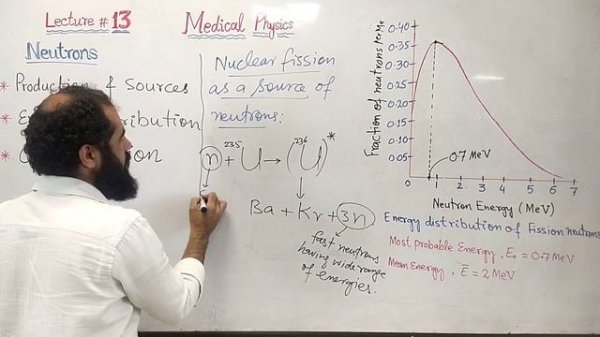 Lecture # 13
Medical Physics
Neutrons
* Production & Sources
Nuclear fission
as a source of
neutrons:
n + ²³⁵U → (²³⁶U)*
Ba + Kr + 3n
fast neutrons
having wide range
of energies.
Fraction of neutrons
0.40
0.35
0.30
0.25
0.20
0.15
0.10
0.05
0.7 MeV
1 2 3 4 5 6 7
Neutron Energy (MeV)
Energy distribution of Fission neutrons
Most probable Energy, E = 0.7 MeV
Mean Energy, Ē = 2 MeV